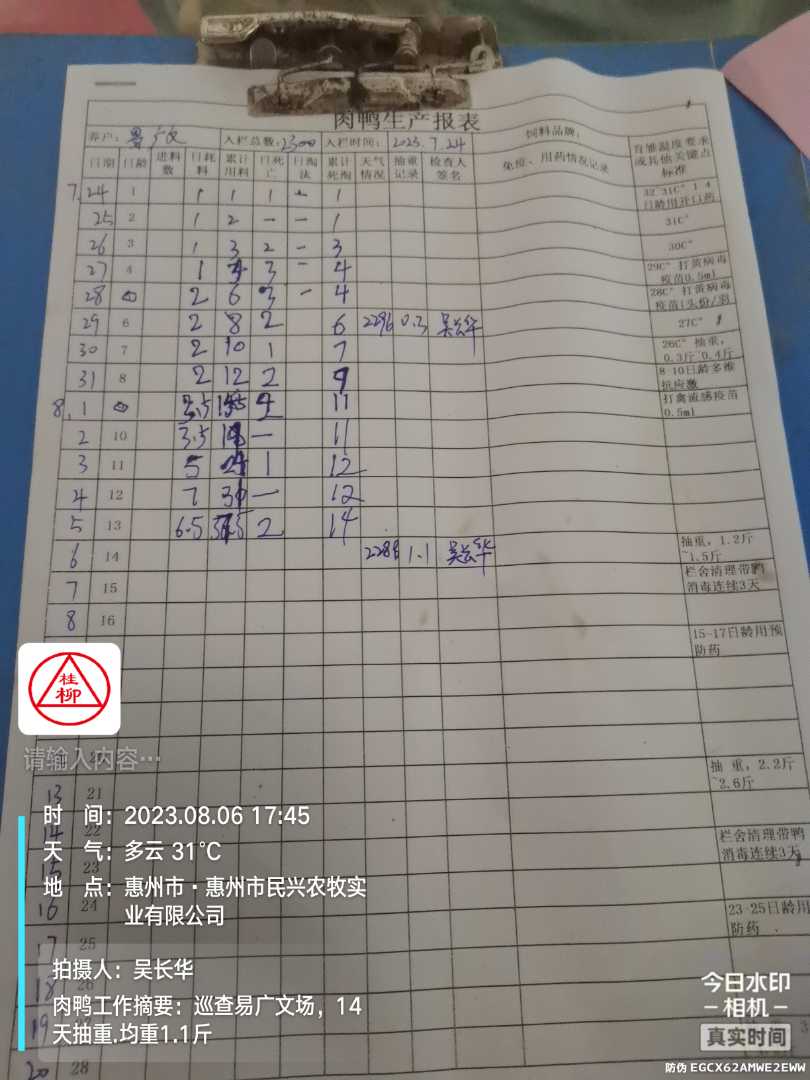 肉鸭生产报表
养户: 入栏总数: 2300 入栏时间: 2023.7.24 饲料品牌:
日期 日龄 进料数 日耗料 累计用料 日死亡 日淘汰 累计死淘 天气情况 抽重记录 检查人签名 免疫、用药情况记录 育雏温度要求或其他关键点标准
7.24 1 1 1 1 - 1 32~31C° 1-4日龄用开口药
25 2 1 2 - - 1 31C°
26 3 1 3 2 - 3 30C°
27 4 1 3 - 4 29C° 打黄病毒疫苗0.5ml
28 2 6 3 - 4 28C° 打黄病毒疫苗1头份/羽
29 6 2 8 2 6 2296 0.3 27C°
30 7 2 10 1 7 26C° 抽重,0.3斤~0.4斤
31 8 2 12 2 9 8-10日龄多维抗应激
8.1 11 打禽流感疫苗0.5ml
2 10 3.5 - 11
3 11 5 1 12
4 12 7 - 12
5 13 6.5 2 14
6 14 1.1 抽重,1.2斤~1.5斤
7 15 栏舍清理带鸭消毒连续3天
8 16
15-17日龄用预防药
桂柳
请输入内容…
抽重,2.2斤~2.6斤
13 21
14 22 栏舍清理带鸭消毒连续3天
15 23
16 24 23-25日龄用防药
17 25
18 26
19
20 28
时 间: 2023.08.06 17:45
天 气: 多云 31℃
地 点: 惠州市·惠州市民兴农牧实
业有限公司
拍摄人: 吴长华
肉鸭工作摘要: 巡查易广文场，14
天抽重.均重1.1斤
今日水印
-相机-
真实时间
防伪 EGCX62AMWE2EWW